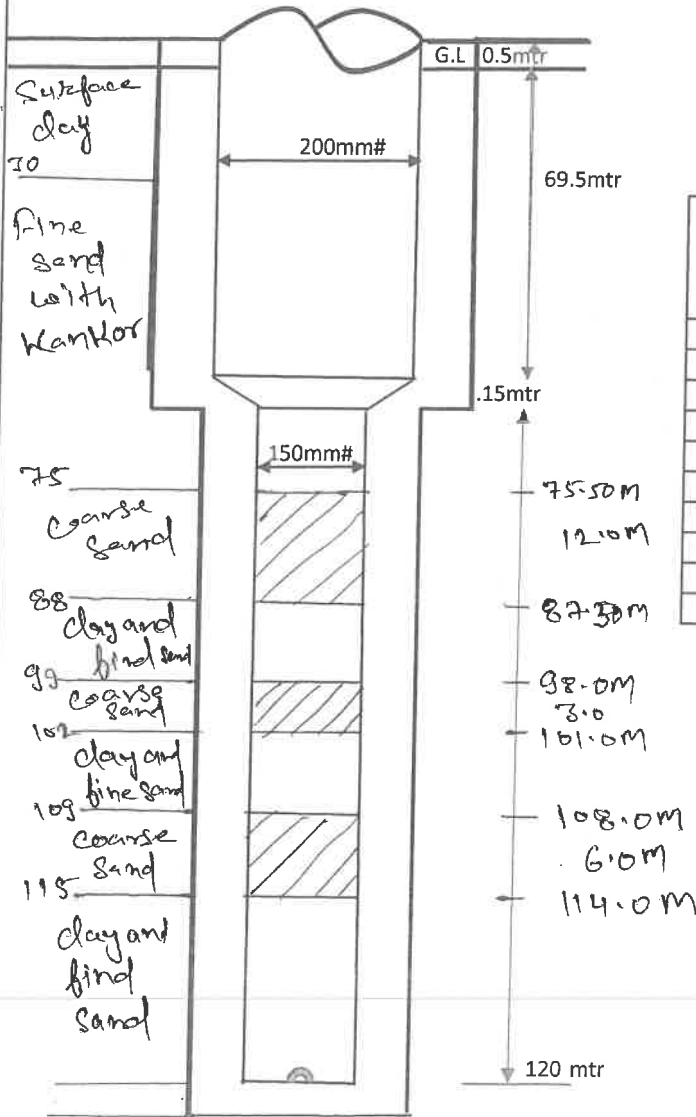 G.L 0.5mtr
Surface
clay
200mm#
30
69.5mtr
Fine
sand
with
Kankor
.15mtr
150mm#
75
75.50M
coarse
sand
12.0M
88
clay and
find sand
87.50M
99
98.0M
coarse
sand
3.0
102
101.0M
clay and
fine sand
109
108.0M
coarse
sand
6.0M
115
114.0M
clay and
find
sand
120 mtr